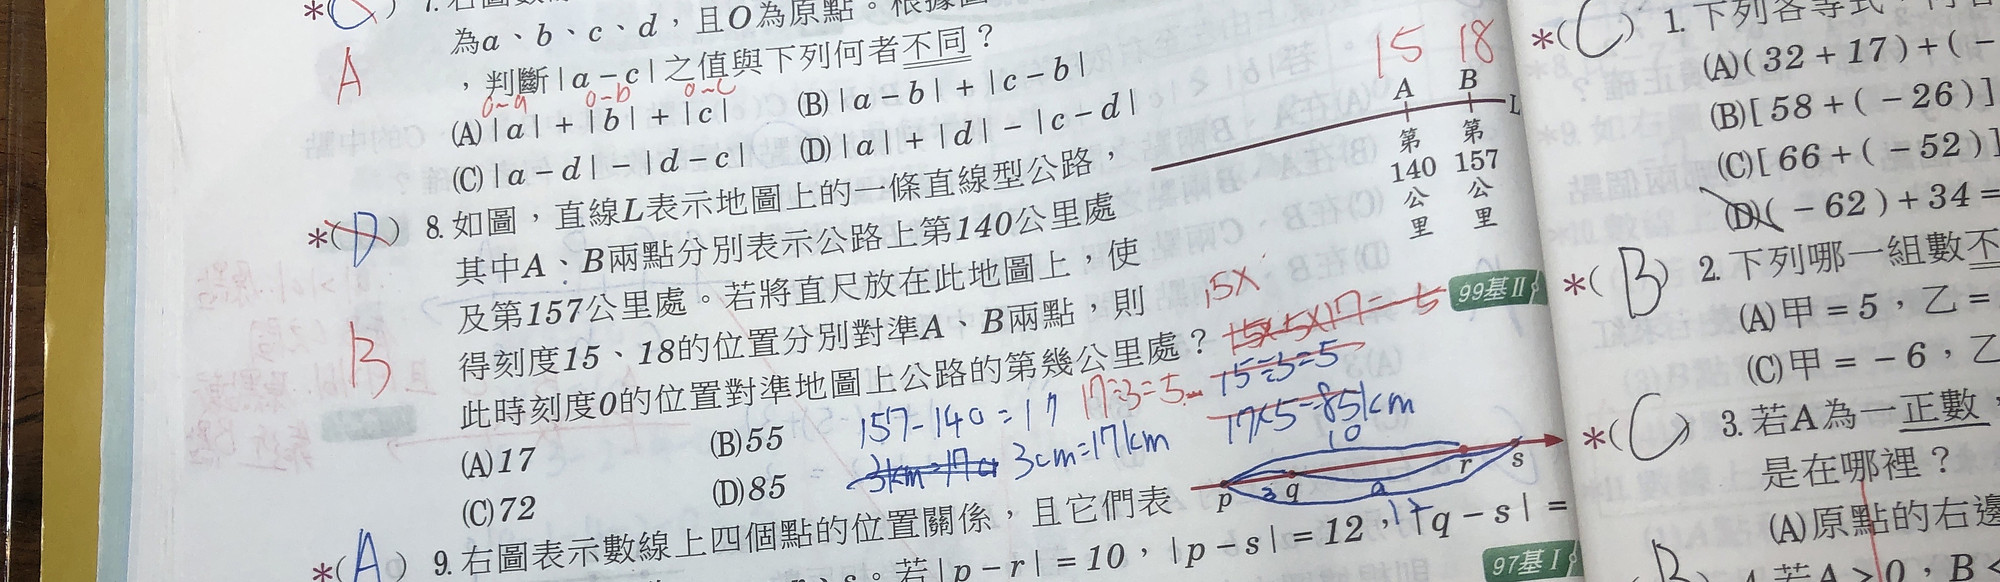 為a、b、c、d，且O為原點。根據
，判斷|a－c|之值與下列何者不同？
A
o~a o~b o~c
(A)|a|＋|b|＋|c| (B)|a－b|＋|c－b|
(C)|a－d|－|d－c| (D)|a|＋|d|－|c－d|
*(D) 8. 如圖，直線L表示地圖上的一條直線型公路，
其中A、B兩點分別表示公路上第140公里處
及第157公里處。若將直尺放在此地圖上，使
得刻度15、18的位置分別對準A、B兩點，則
此時刻度0的位置對準地圖上公路的第幾公里處？
B
(A)17 (B)55
(C)72 (D)85
15 18
A B L
第140公里
第157公里
99基II
15×
15×5×17=5
17÷3=5... 15÷3=5
157-140=17
17×5=85km
3km=17
3cm=17km
*(A) 9. 右圖表示數線上四個點的位置關係，且它們表
若|p－r|＝10，|p－s|＝12，|q－s|＝
10
p q r s
97基I
*(C) 1. 下列各等式，
(A)(32＋17)＋(－
(B)[58＋(－26)]
(C)[66＋(－52)]
(D)(－62)＋34＝
*(B) 2. 下列哪一組數不
(A)甲＝5，乙＝
(C)甲＝－6，乙
*(C) 3. 若A為一正數，
是在哪裡？
(A)原點的右邊
4. 若A＞0，B＜